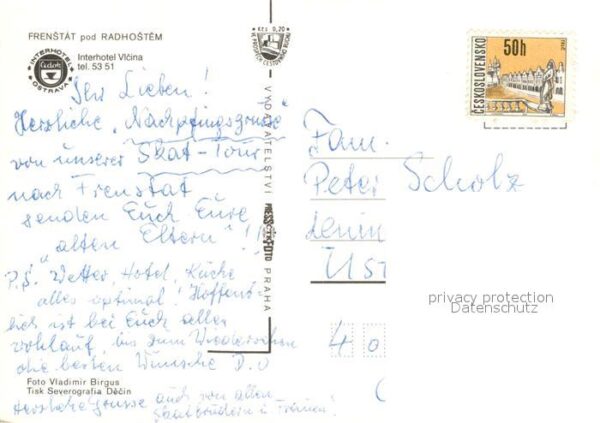 FRENŠTÁT pod RADHOŠTĚM
INTERHOTEL
Čedok
OSTRAVA
Interhotel Vlčina
tel. 53 51
Ihr Lieben!
Herzliche „Nachpfingstgrüsse"
von unserer Skat-Tour
nach Frenštat
senden Euch Eure
„alten Eltern"!!
P.S. Wetter, Hotel, Küche
alles optimal! Hoffent-
lich ist bei Euch alles
wohlauf, bis zum Wiedersehen
die besten Wünsche D.O
Herzliche Grüsse auch von allen
Skatbrüdern u. Frauen!
Foto Vladimír Birgus
Tisk Severografia Děčín
KČS 0,20
VYDAVATELSTVÍ PRESSFOTO PRAHA
ČESKOSLOVENSKO
50h
TELČ
Fam.
Peter Scholz
Lenin
Ust
40
privacy protection
Datenschutz